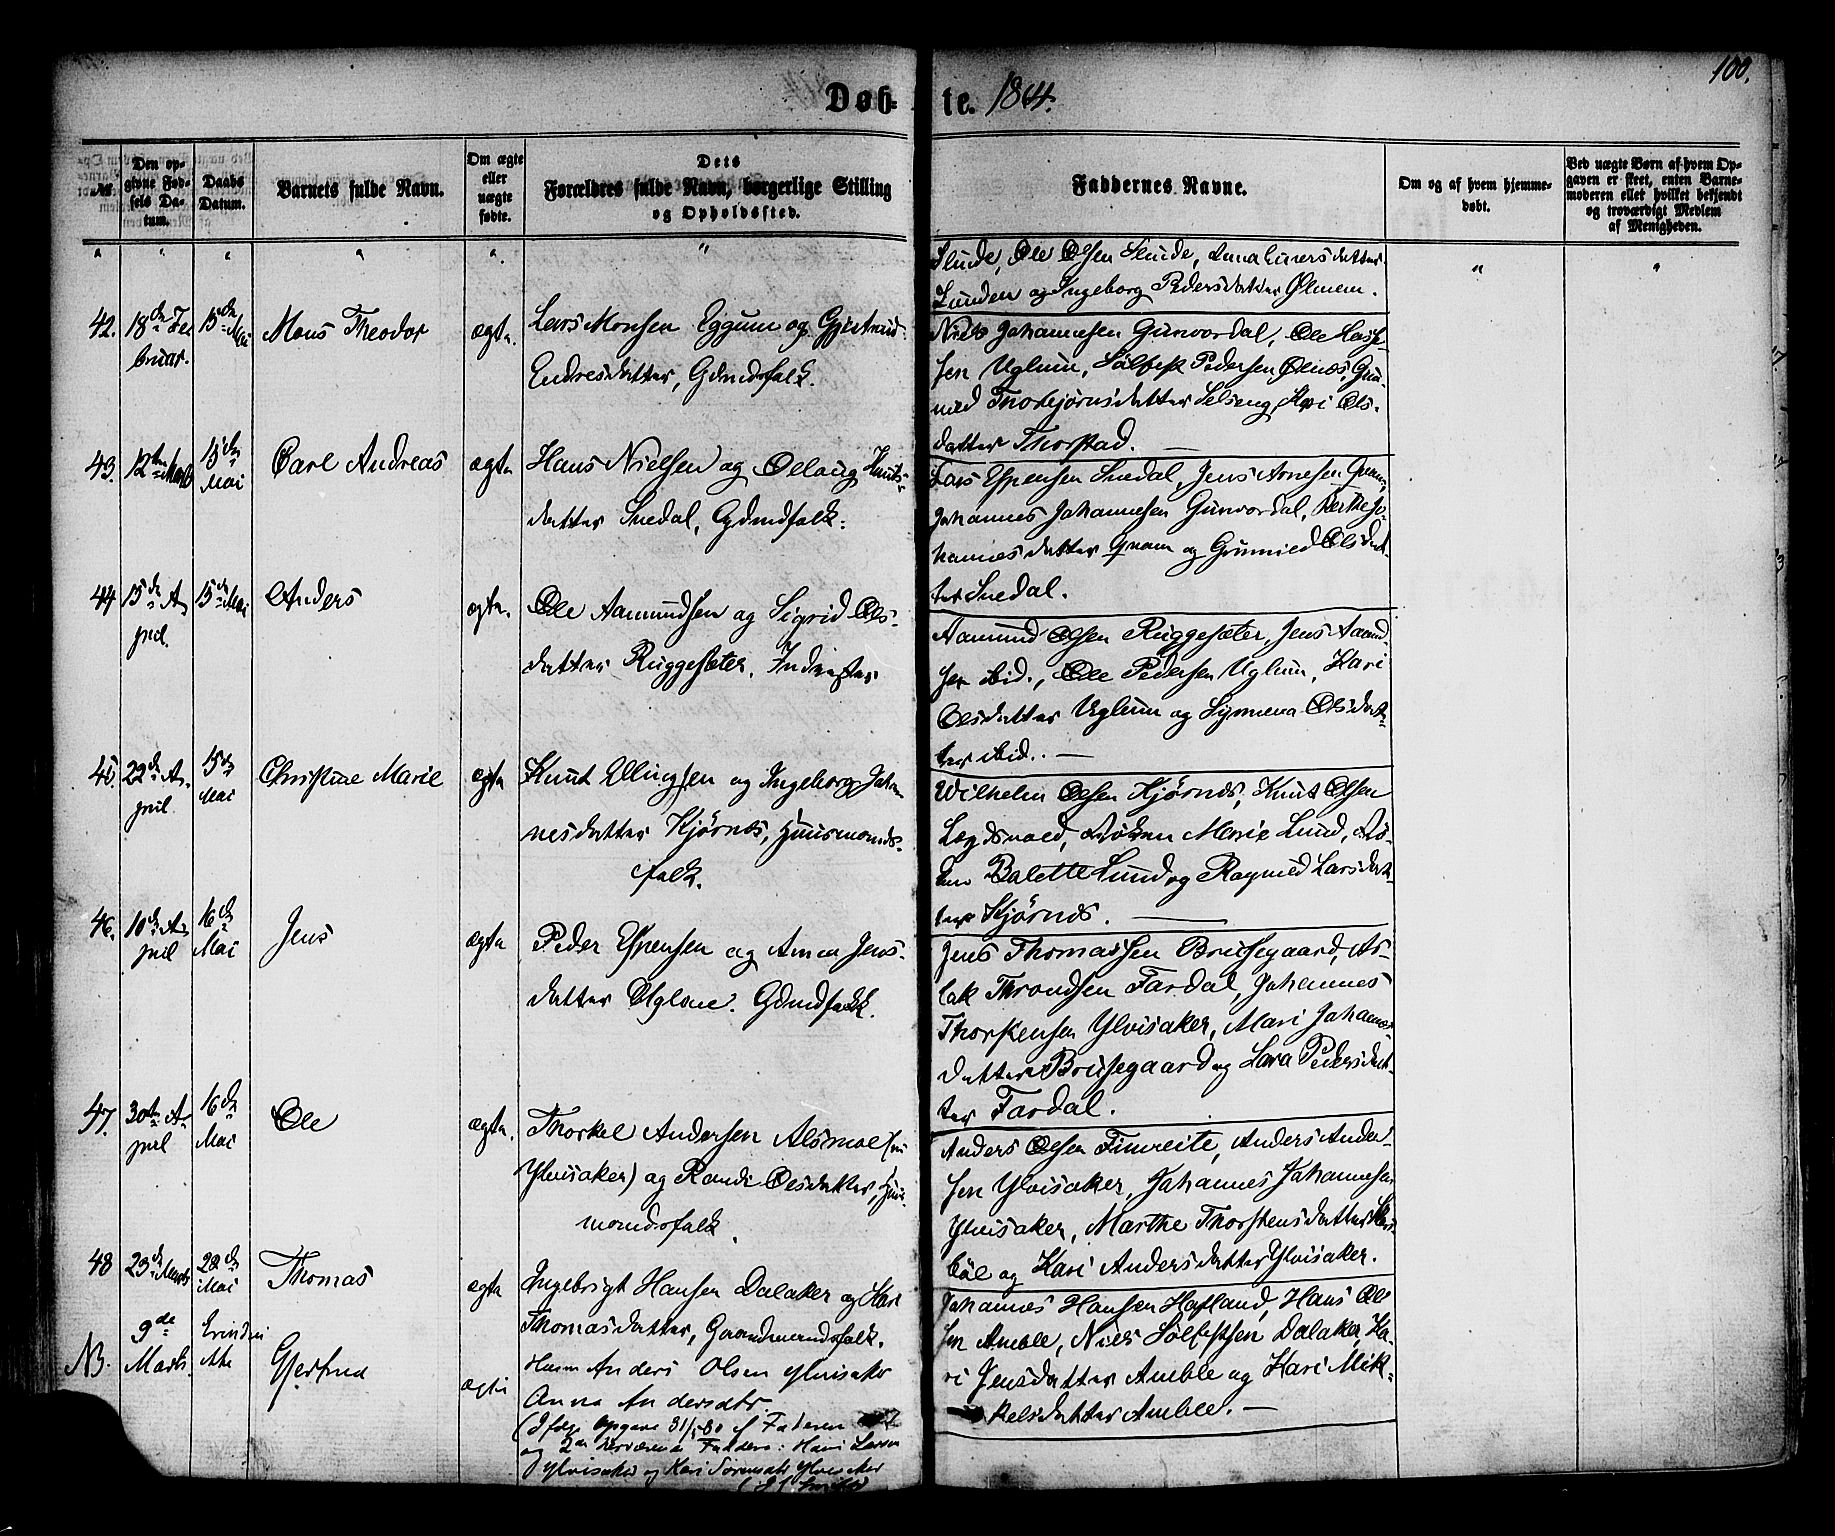 100.
Døb- te. 1864.
№
Den op-
givne Fød-
sels Da-
tum.
Daabs
Datum.
Barnets fulde Navn.
Om ægte
eller
uægte
fødte.
Dets
Forældres fulde Navn, borgerlige Stilling
og Opholdssted.
Faddernes Navne.
Om og af hvem hjemme-
døbt.
Ved uægte Børn af hvem Op-
gaven er skeet, enten Barne-
moderen eller hvilket bekjendt
og troværdigt Medlem
af Menigheden.
" " " " " "
Slinde, Ole Olsen Slinde, Anna Einersdatter
Lunden og Ingeborg Pedersdatter Ølmem.
" "
42. 18de Fe
bruar.
15de Mai
Mons Theodor
ægte.
Lars Monsen Eggum og Gjertrud
Endresdatter, Gdmdsfolk.
Niels Johannesen Gurvordal, Ole Lasse-
sen Uglum, Sølfest Pedersen Ølnæs, Gun-
nild Thorbjørnsdatter Selseng, Kari Ols-
datter Thorstad. —
43. 12te Marts
15de
Mai
Carl Andreas
ægte
Hans Nielsen og Oelaug Knuts-
datter Snedal, Gdmdfolk.
Lars Espensen Snedal, Jens Arnesen Qvam,
Johannes Johannesen Gurvordal, Berthe Jo-
hannesdatter Qvam og Grunnild Olsdat-
ter Snedal.
44 15de A-
pril.
15de Mai
Anders
ægte.
Ole Aamundsen og Sigrid Ols-
datter Ruggesæter. Inderster
Aamund Olsen Ruggesæter, Jens Aamund
sen ibid., Ole Pedersen Uglum, Kari
Olsdatter Uglum og Synneva Olsdat-
ter ibid. —
45. 22de A-
pril.
15de
Mai
Christine Marie
ægte
Knut Ellingsen og Ingeborg Johan
nesdatter Kjørnes, Huusmands-
folk.
Wilhelm Olsen Kjørnes, Knut Olsen
Lægdsvold, Frøken Marie Lund, Frø-
ken Balette Lund og Ragnild Larsdat-
ter Kjørnes. —
46. 10de A-
pril
16de
Mai
Jens
ægte
Peder Espensen og Anna Jens-
datter Uglene. Gdmdfolk.
Jens Thomassen Brusegaard, As-
lak Throndsen Fardal, Johannes
Thorstensen Ylvisaker, Mari Johannes
datter Brusegaard og Lara Pedersdat-
ter Fardal.
47. 30te A-
pril
16de
Mai
Ole
ægte.
Thorkel Andersen Alsmoe (nu
Ylvisaker) og Randi Olsdatter, Huus-
mandsfolk.
Anders Olsen Fimreite, Anders Ander-
sen Ylvisaker, Johannes Johannesen
Ylvisaker, Marthe Thorstensdatter Skri-
bøl og Kari Andersdatter Ylvisaker.
48 23de Marts
22de
Mai
Thomas
ægte
Ingebrigt Hansen Dalaker og Kari
Thomasdatter, Gaardmandsfolk.
Johannes Hansen Hafland, Hans Ol-
sen Amble, Niels Sølfestsen Dalaker, Ka-
ri Jensdatter Amble og Kari Mik-
kelsdatter Amble. —
NB.
9de
Marts.
Gjertrud
ægte
Anders Olsen Ylvisaker
Anna Andersdtr.
(Ifølge Opgave 31/5 80 af Faderen
og 2de Faddere: Hans Larsen
Ylvisaker og Kari Sørensdtr Ylvisaker